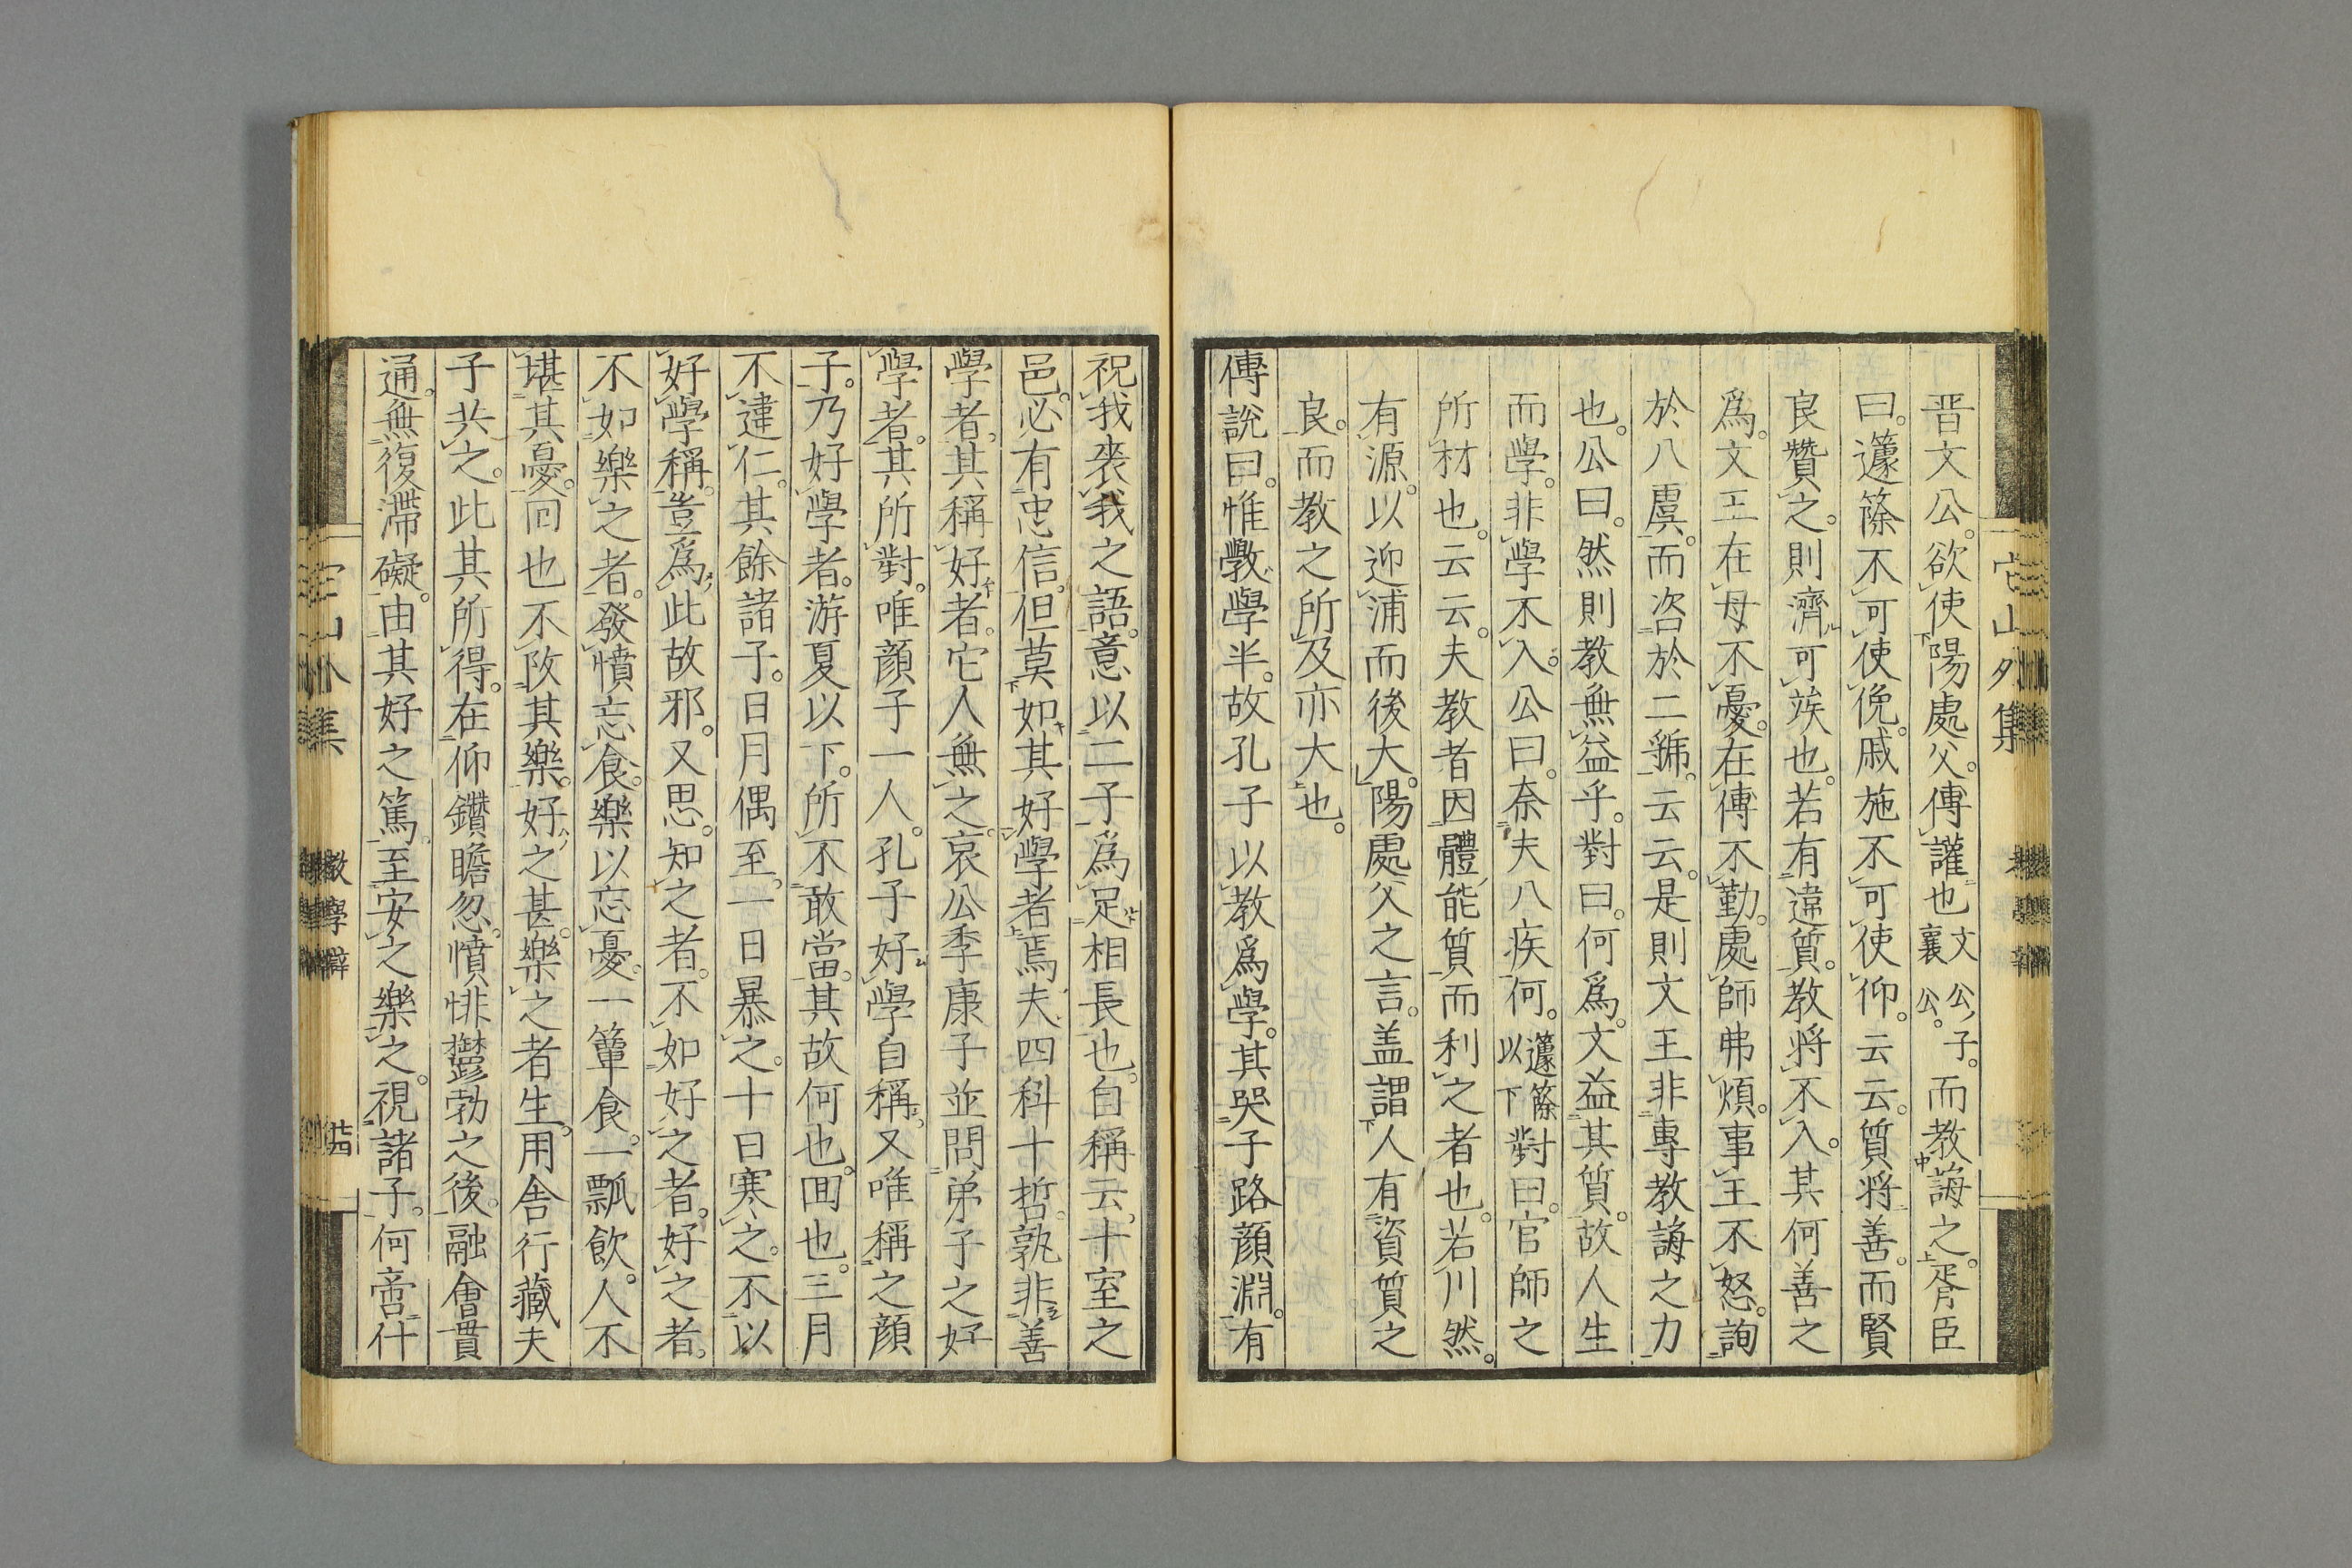 晋文公。欲使陽處父。傳讙也文公子。襄公。而教誨之。胥臣
曰。籧篨不可使俛。戚施不可使仰。云云。質將善。而賢
良贊之。則濟可竢也。若有違質。教將不入。其何善之
爲。文王在母不憂。在傅不勤。處師弗煩。事王不怒。詢
於八虞。而咨於二虢。云云。是則文王非專教誨之力
也。公曰。然則教無益乎。對曰。何爲。文益其質。故人生
而學。非學不入。公曰。奈夫八疾何。籧篨以下對曰。官師之
所材也。云云。夫教者因體能質而利之者也。若川然。
有源。以迎浦而後大。陽處父之言。盖謂人有資質之
良。而教之所及亦大也。
傳說曰。惟斆學半。故孔子以教爲學。其哭子路顏淵。有
祝我喪我之語。意以二子爲足相長也。自稱云。十室之
邑。必有忠信。但莫如其好學者焉。夫四科十哲。孰非善
學者。其稱好者。它人無之。哀公季康子並問弟子之好
學者。其所對。唯顏子一人。孔子好學自稱。又唯稱之顏
子。乃好學者。游夏以下。所不敢當。其故何也。囬也。三月
不違仁。其餘諸子。日月偶至。一日暴之。十日寒之。不以
好學稱。豈爲此故邪。又思。知之者。不如好之者。好之者。
不如樂之者。發憤忘食。樂以忘憂。一簞食。一瓢飲。人不
堪其憂。囘也不改其樂。好之甚。樂之者生。用舍行藏夫
子共之。此其所得。在仰鑽瞻忽。憤悱鬱勃之後。融會貫
通。無復滯礙。由其好之篤。至安之樂之。視諸子。何啻什
它山外集
教學辯